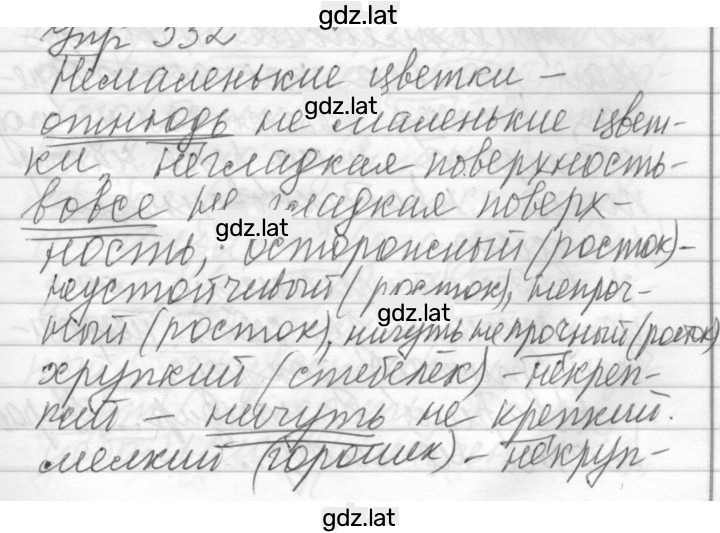 gdz.lat
Упр 332
Немаленькие цветки –
gdz.lat
отнюдь не маленькие цвет-
ки, негладкая поверхность-
вовсе не гладкая поверх-
gdz.lat
ность, осторожный (росток)-
неустойчивый (росток), непроч-
gdz.lat
ный (росток), ничуть не прочный (росток)
хрупкий (стебелёк) - некреп-
кий – ничуть не крепкий.
мелкий (горошек) - некруп-
gdz.lat